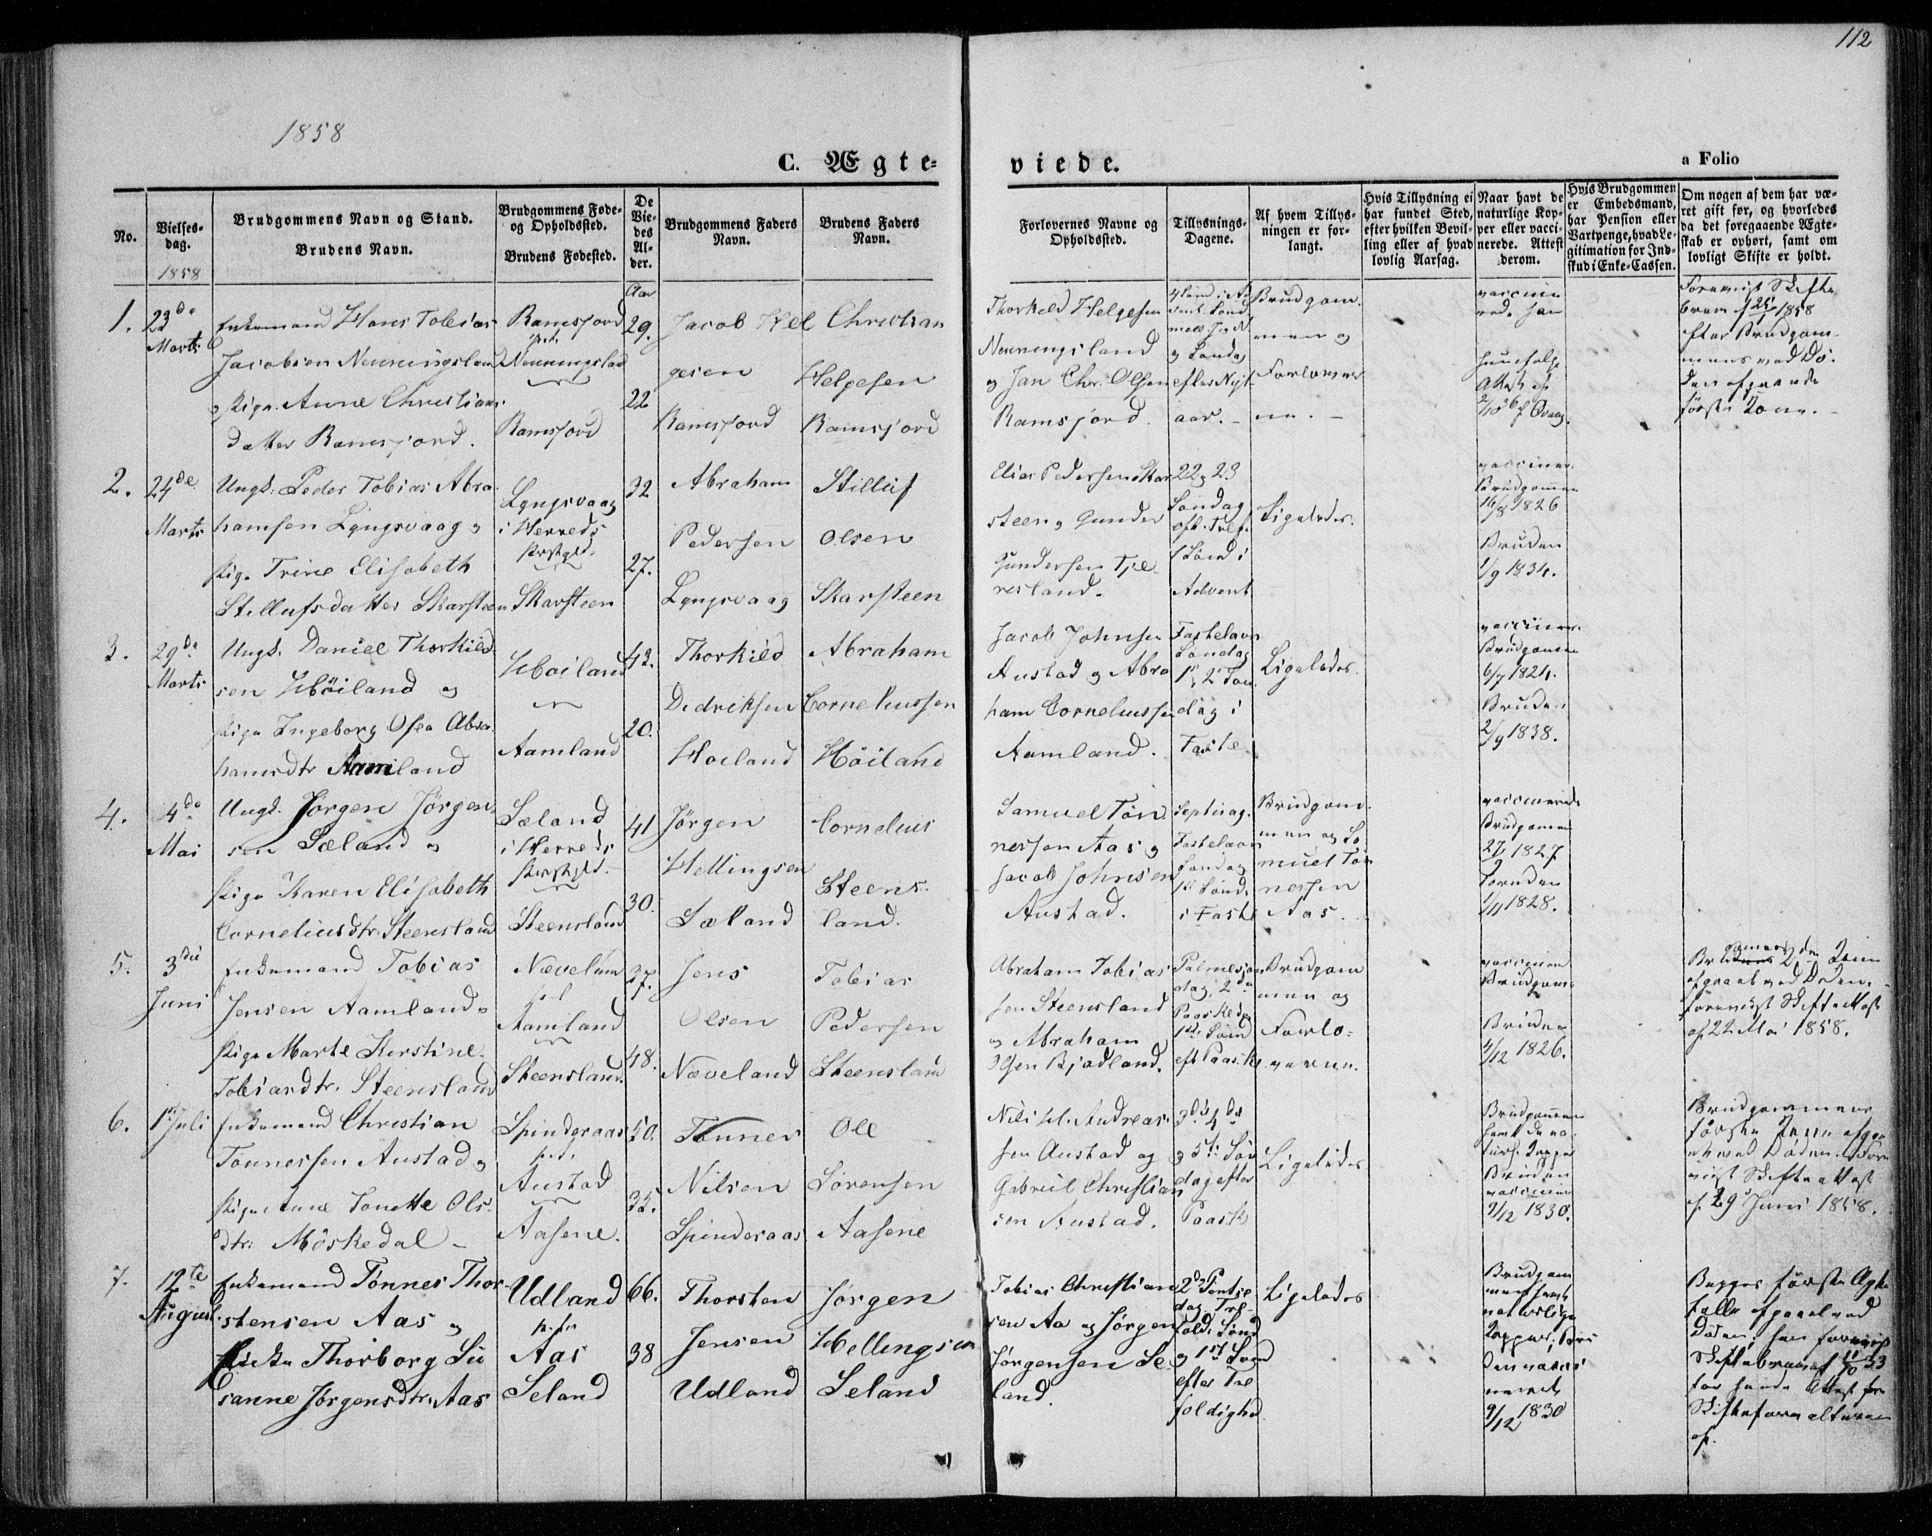 112
1858
C. Ægte-
viede.
a Folio
No.
Vielses-
dag.
1858
Brudgommens Navn og Stand.
Brudens Navn.
Brudgommens Føde-
og Opholdssted.
Brudens Fødested.
De
Vie-
des
Al-
der.
Brudgommens Faders
Navn.
Brudens Faders
Navn.
Forlovernes Navne og
Opholdssted.
Tillysnings-
Dagene.
Af hvem Tillys-
ningen er for-
langt.
Hvis Tillysning ei
har fundet Sted,
efter hvilken Bevil-
ling eller af hvad
lovlig Aarsag.
Naar havt de
naturlige Kop-
per eller vacci-
nerede. Attest
derom.
Hvis Brudgommen
er Embedsmand,
har Pension eller
Vartpenge, hvad Le-
gitimation for Ind-
skud i Enke-Cassen.
Om nogen af dem har væ-
ret gift før, og hvorledes
da det foregaaende Ægte-
skab er ophørt, samt om
lovligt Skifte er holdt.
Aar
1.
23de
Marts
Enkemand Hans Tobias
Jacobsen Nenningsland
og Pige Anne Christians
datter Ramsfjord.
Ramsfjord
Nenningsland
Ramsfjord
29.
22
Jacob Hel
gesen
Ramsfjord
Christian
Helgesen
Ramsfjord
Thorkild Helgesen
Nenningsland
og Jan Chr. Olsen
Ramsfjord.
og Søndag
efter Nyt
aar. -
Brudgom
men og
Forlover
ne. -
Foreviist Skifte
brev af 25/1 1858
efter Brudgom
mens ved Dø
den afgaaede
første Kone. -
2.
24de
Marts
Ungk. Peder Tobias Abra
hamsen Lyngsvaag og
Pige Trine Elisabeth
Stillufsdatter Skarsteen
Lyngsvaag
i Herreds
Præstgd.
Skarsteen
32
27.
Abraham
Pedersen
Lyngsvaag
Stilluf
Olsen
Skarsteen
Elias Pedersen Skar
steen og Gunder
Gundersen Tje
resland.
22 og 23
Søndag
eft. Tref.
1 Sønd i
Advent
Ligeledes.
vacciner.
Brudgommen
16/8 1826
Bruden
1/9 1834.
3.
29de
Marts
Ungk. Daniel Thorkild
sen Høiland og
Pige Ingeborg Osea Abra
hamsdtr Aamland
Høiland
Aamland
42.
20.
Thorkild
Didriksen
Høiland
Abraham
Corneliussen
Høiland
Jacob Johnsen
Austad og Abra
ham Corneliussen
Aamland.
Fastelavn
Søndag
1, 2 Søn
dag i
Faste.
Ligeledes.
vacciner.
Brudgommen
6/7 1824.
Bruden
2/9 1838.
4.
4de
Mai
Ungk. Jørgen Jørgen
sen Sæland og
Pige Karen Elisabeth
Corneliusdtr. Steensland
Sæland
i Herreds
Præstgld.
Steensland
41
30.
Jørgen
Hellingsen
Sæland
Cornelius
Steens-
land.
Samuel Tøn
nessen Aas og
Jacob Johnsen
Austad.
Septuag.
Fastelavn
Søndag
1ste Sønd.
i Faste
Brudgom
men og Sa
muel Tøn
nessen
Aas.
vaccinerede
Brudgommen
27/9 1827
Bruden
1/11 1828.
5.
3die
Juni
Enkemand Tobias
Jensen Aamland og
Pige Marte Kirstine
Tobiasdtr. Steensland
Næveland
Aamland
Steensland.
37.
48.
Jens
Olsen
Næveland
Tobias
Pedersen
Steensland
Abraham Tobias
sen Steensland
og Abraham
Olsen Bjodland.
Palmesøn
dag, 2de
Paaskedag
1ste Sønd
eft Paaske
Brudgom
men og
Forlo-
verne.
vaccineret
Brudgom.
Bruden
4/12 1826.
Brudgommens 2den Kone
afgaaet ved Døden.
Foreviist Skifteattest
af 22 Mai 1858.
6.
1ste Juli
Enkemand Christian
Tønnessen Austad og
Pige Anne Tonette Ols
dtr: Möskedal -
Spinderaas
Austad
Aasene.
50.
35.
Tønnes
Nilsen
Spinderaas
Ole
Sørensen
Aasene
Nils H. Andreas
sen Austad og
Gabriel Christian
sen Austad.
3die, 4de
og 5te Søn
dag efter
Paaske
Ligeledes
Brudgommen
havt de na
turl. Kopper
Bruden
vaccineret
9/12 1830.
Brudgommens
første Kone afgaa
et ved Døden. Fore
viist Skifteattest
af 29 Juni 1858.
7.
12te
August
Enkemand Tønnes Thor
stensen Aas og
Enke Thorborg Su
sanne Jørgensdtr. Aas
Udland
Aas
Seland
66.
38
Thorsten
Jensen
Udland
Jørgen
Hellingsen
Seland
Tobias Christian
sen Aa og Jørgen
Jørgensen Se
land.
2de Pintse
dag, Tre
fold. Sønd
og 1ste Sønd
efter Tre
foldighed
Ligeledes
Brudgom
men havt
naturlige
Kopper, Bru
den vacci
neret
9/12 1830
Begges første Ægte
fælle afgaaet ved
Døden; han foreviist
for hende Attest fra
Skifteforvalteren